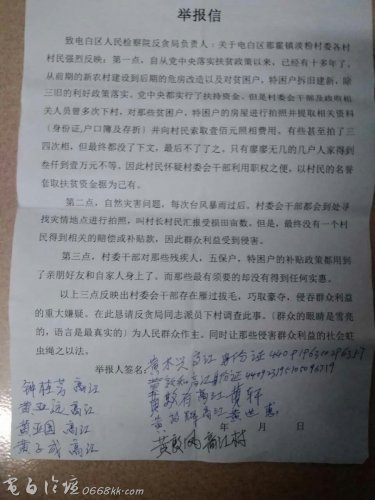 举报信
致电白区人民检察院反贪局负责人:关于电白区那霍镇波粉村委各村
村民强烈反映:第一点,自从党中央落实扶贫政策以来,已经有十多年了、
从前期的新农村建设到后期的危房改造以及对贫困户,特困户拆旧建新,除
三旧的利好政策落实。党中央都实行了扶持资金。但是村委会干部及政府相
关人员曾多次下村,对那些贫困户,特困户的房屋进行拍照并提取相关资料
(身份证,户口簿及存折)并向村民索取壹佰元照相费用。有些甚至拍了三
四次相,但最终都没了下文,最后不了了之,只有廖廖无几的几户人家得到
叁仟到壹万元不等。因此村民怀疑村委会干部利用职权之便,以村民的名誉
套取扶贫资金据为己有。
第二点,自然灾害问题,每次台风暴雨过后,村委会干部都会到处寻
找灾情地点进行拍照,叫村长村民汇报受损田亩数。但是,最终没有一个村
民得到相关的赔偿或补贴款,因此群众利益受到侵害。
第三点,村委干部对那些残疾人,五保户,特困户的补贴政策都用到
了亲朋好友和自家人身上了。而那些最有须要的却没有得到任何实惠。
以上三点反映出村委会干部存在雁过拔毛,巧取豪夺,侵吞群众利益
的重大嫌疑。在此恳请反贪局同志派员下村调查此事。(群众的眼睛是雪亮
的,语言是最真实的)为人民群众作主。同时让那些侵害群众利益的社会蛀
虫绳之以法。
举报人签名:
高江
高江
黄亚国 高江
高江
年 月 日
高江村
电白论坛 0668kk.com